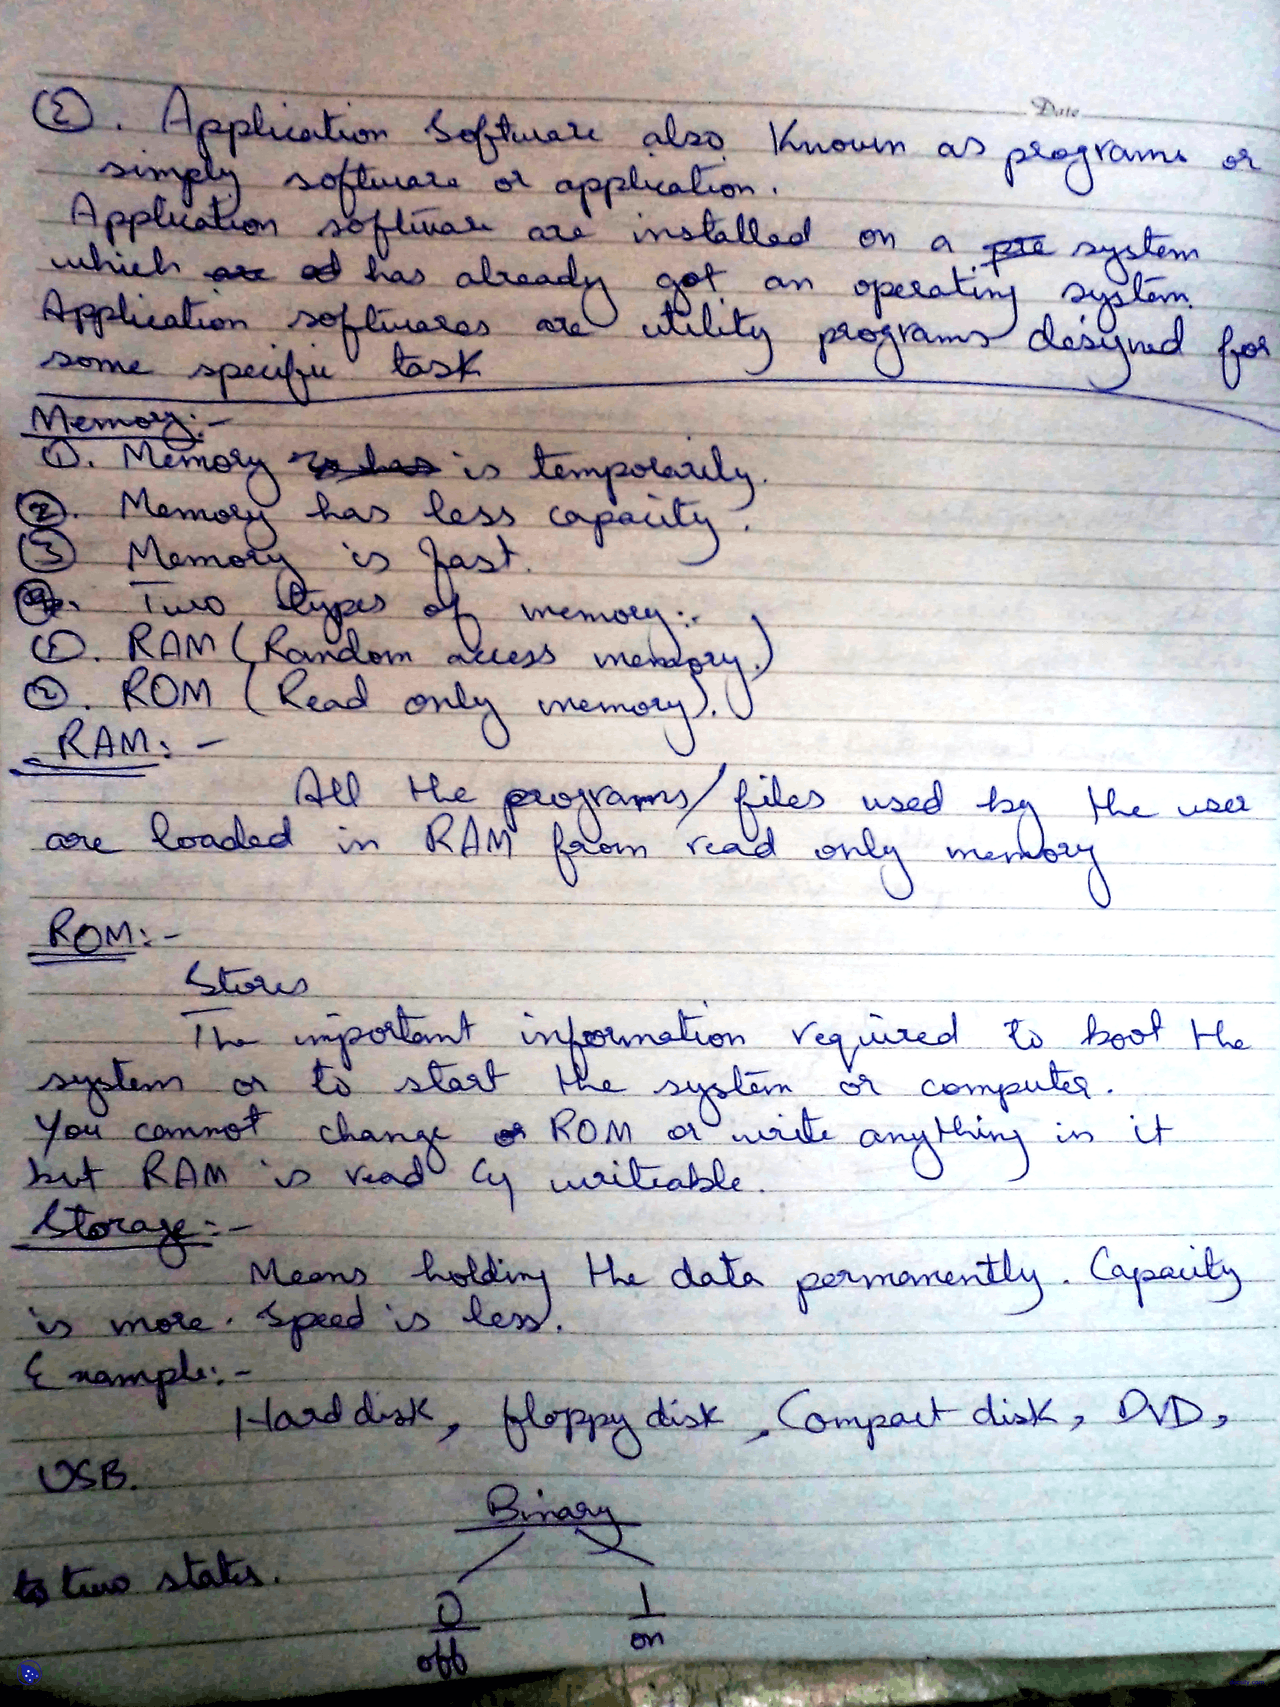 Date
(2). Application Software also Known as programs or
simply software or application.
Application software are installed on a system
which has already got an operating system.
Application softwares are utility programs designed for
some specific task
Memory:-
①. Memory is temporarily.
②. Memory has less capacity.
③ Memory is fast.
④. Two types of memory:-
①. RAM (Random access memory.)
②. ROM (Read only memory).
RAM:-
All the programs/files used by the user
are loaded in RAM from read only memory
ROM:-
Stores
The important information required to boot the
system or to start the system or computer.
You cannot change ROM or write anything in it
but RAM is read & writeable.
Storage:-
Means holding the data permamently. Capacity
is more. Speed is less.
Example:-
Hard disk, floppy disk, Compact disk, DVD,
USB.
Binary
two states.
0 1
off on